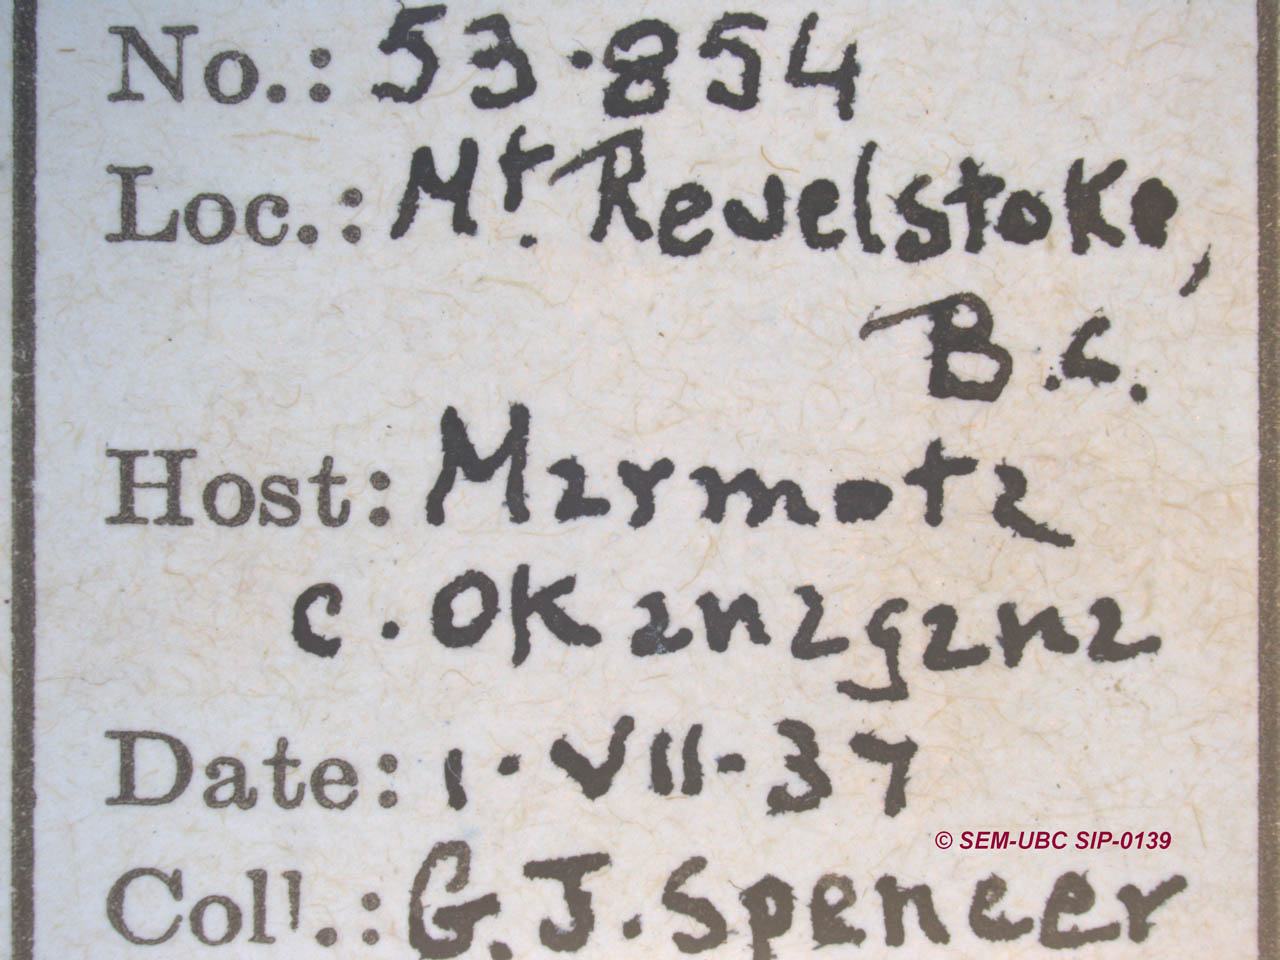 No.: 53.854
Loc.: Mt. Revelstoke,
B.C.
Host: Marmota
c. okanagana
Date: 1.VII-37
© SEM-UBC SIP-0139
Coll.: G.J. Spencer